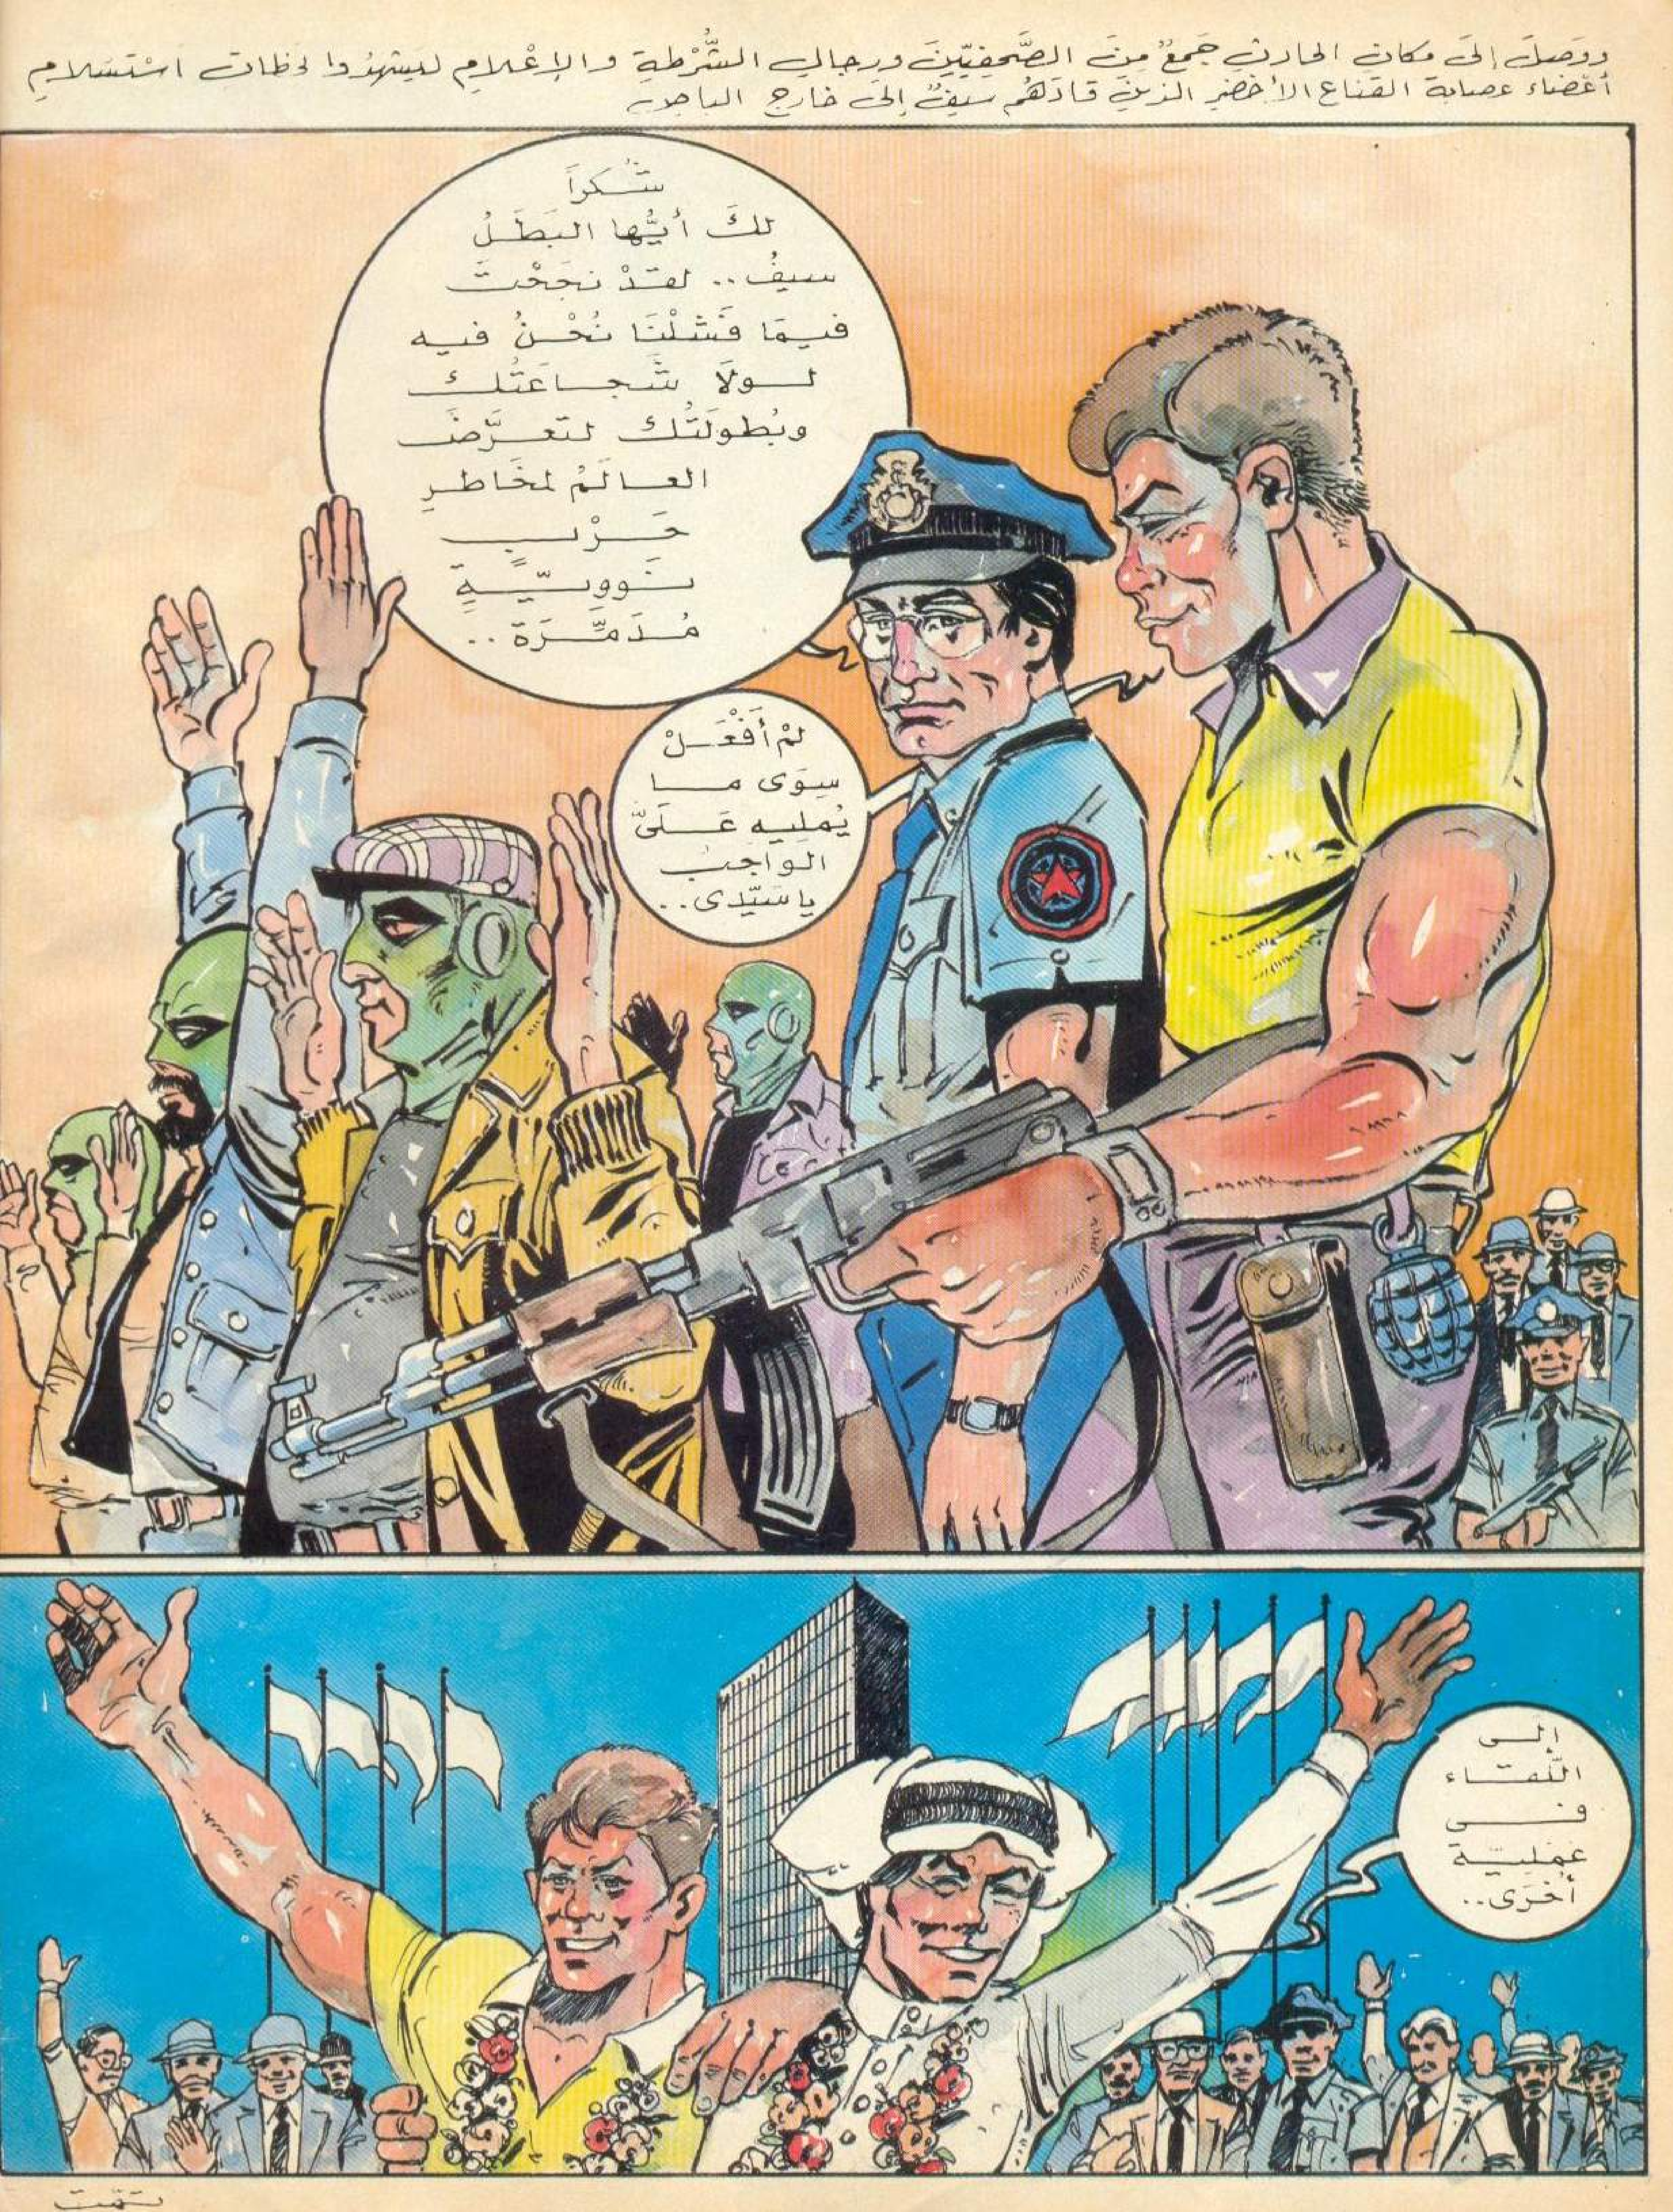 ووَصلَ إلَى مكانِ الحادثِ جَمعٌ مِنَ الصَّحفِيّينَ ورجالِ الشُّرْطةِ والإعْلامِ ليشهدُوا لحظاتِ اسْتسْلامِ
أعْضاءِ عصابةِ القناعِ الأخضرِ الذينَ قادَهُم سيفٌ إلَى خارجِ
شُكراً
لكَ أيُّها البَطَلُ
سيفُ.. لقدْ نجَحْتَ
فيمَا فَشلْنَا نَحْنُ فيه
لولاَ شَجاعَتُكَ
وبُطولَتُكَ لتعرَّضَ
العالَمُ لمخَاطرِ
حَرْبٍ
نوويّةٍ
مُدَمِّرَة..
لمْ أفْعَلْ
سِوَى ما
يُمليه عَلَىَّ
الواجبُ
يا سَيِّدى..
إلى
اللّقاء
فى
عَمَليّة
أخْرَى..
تمّت